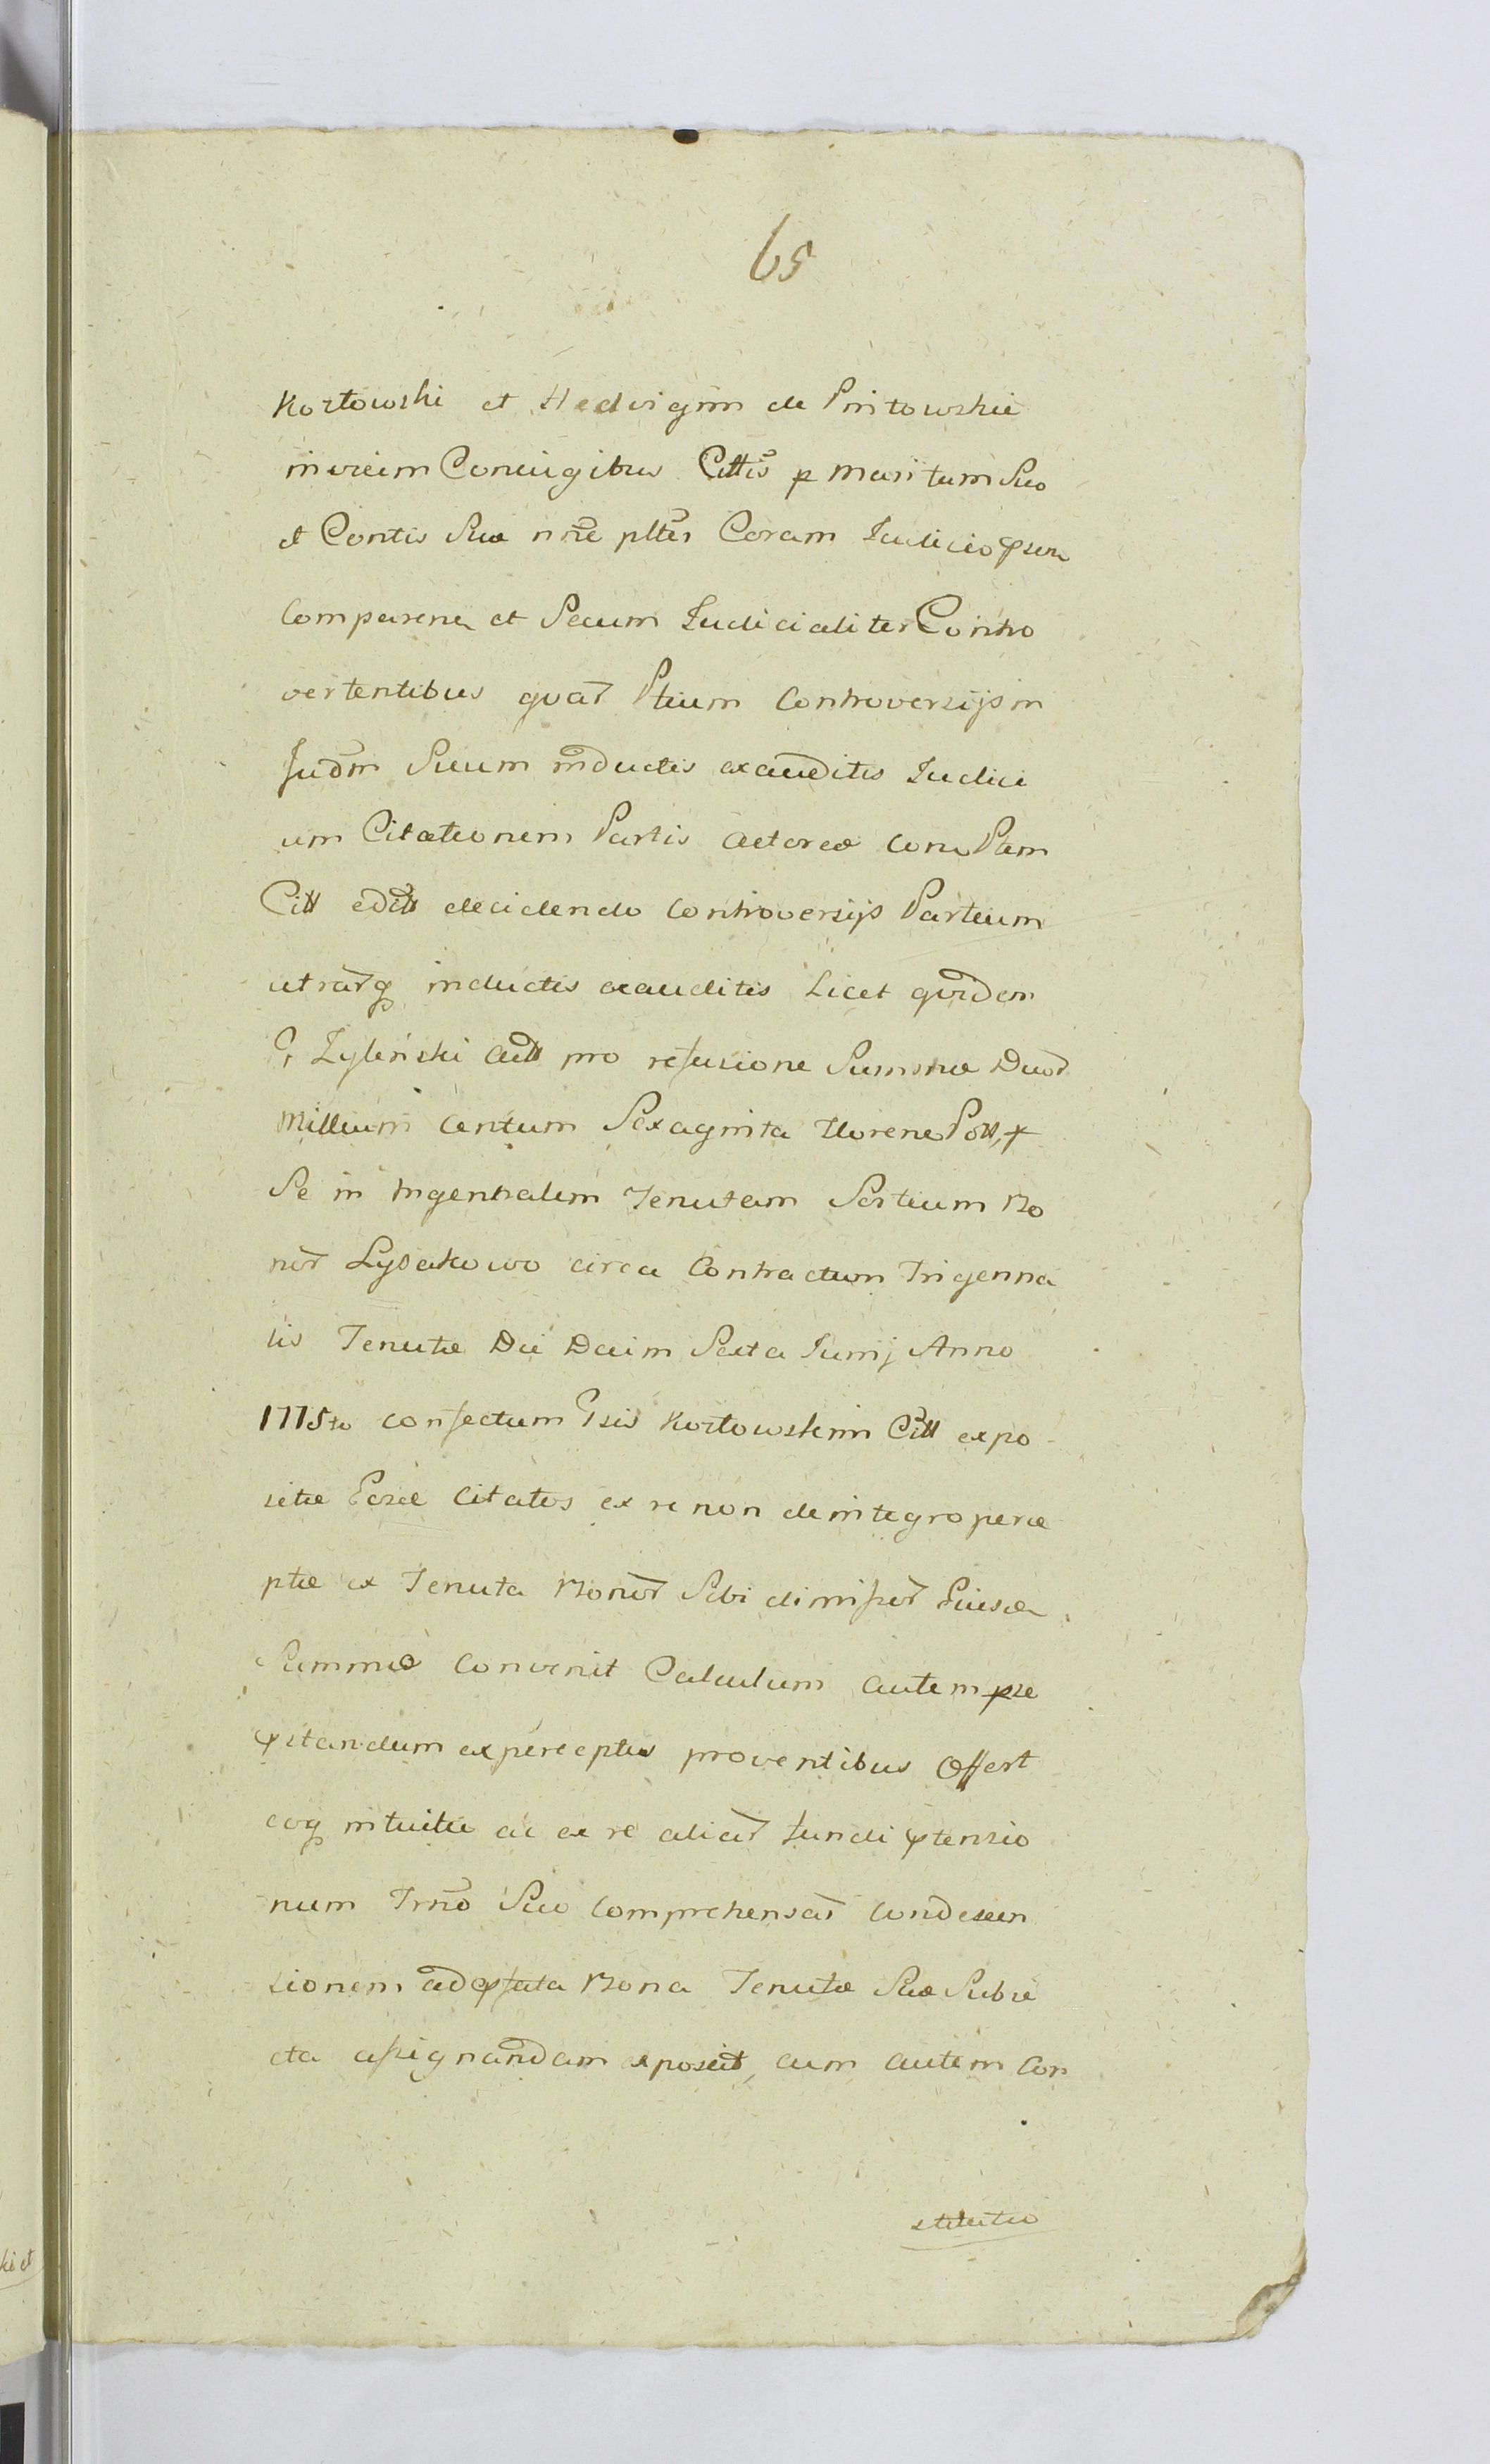 65
Kozłowski et Hedvigim de Pniłowskie
invicim Coniugibus Cittis p Maritum Suo
et Contis Sua nñe pltes Coram Iudicio
Comparen et Secum Iudicialiter Contro
vertentibus quar Ptium Controversijs in
Judm Suum inductis exauditis Iudici
um Citationem Partis Actorea Con Ptem
Citt editt decidendo Controversijs Partium
utrarq inductis exauditis Licet quidem
Zyliński Actt pro refusione Summæ Duor
Millium Centum Sexaginta Floreno Poll,
Se in Tenutam Sortium Bo
nor Łysakowo circa Contractum Trigenna
lis Tenutæ Die Decim Sexta Junij Anno
1775to confectum Kozłowskim Citt expo
sitæ Citatos ex re non de integro perce
ptæ ex Tenuta Bonor Sibi dimissor Eiusd
Summæ Convenit Calculum autem
standum ex perceptis proventibus Offert
eoq intuitu ac ex re aliar fundi ptensio
num Trno Suo Comprehensar Condescen
sionem ad pfata Bona Tenutæ Suæ Subie
cta assignandam exposcit, cum autem Con
stitutio
ki et